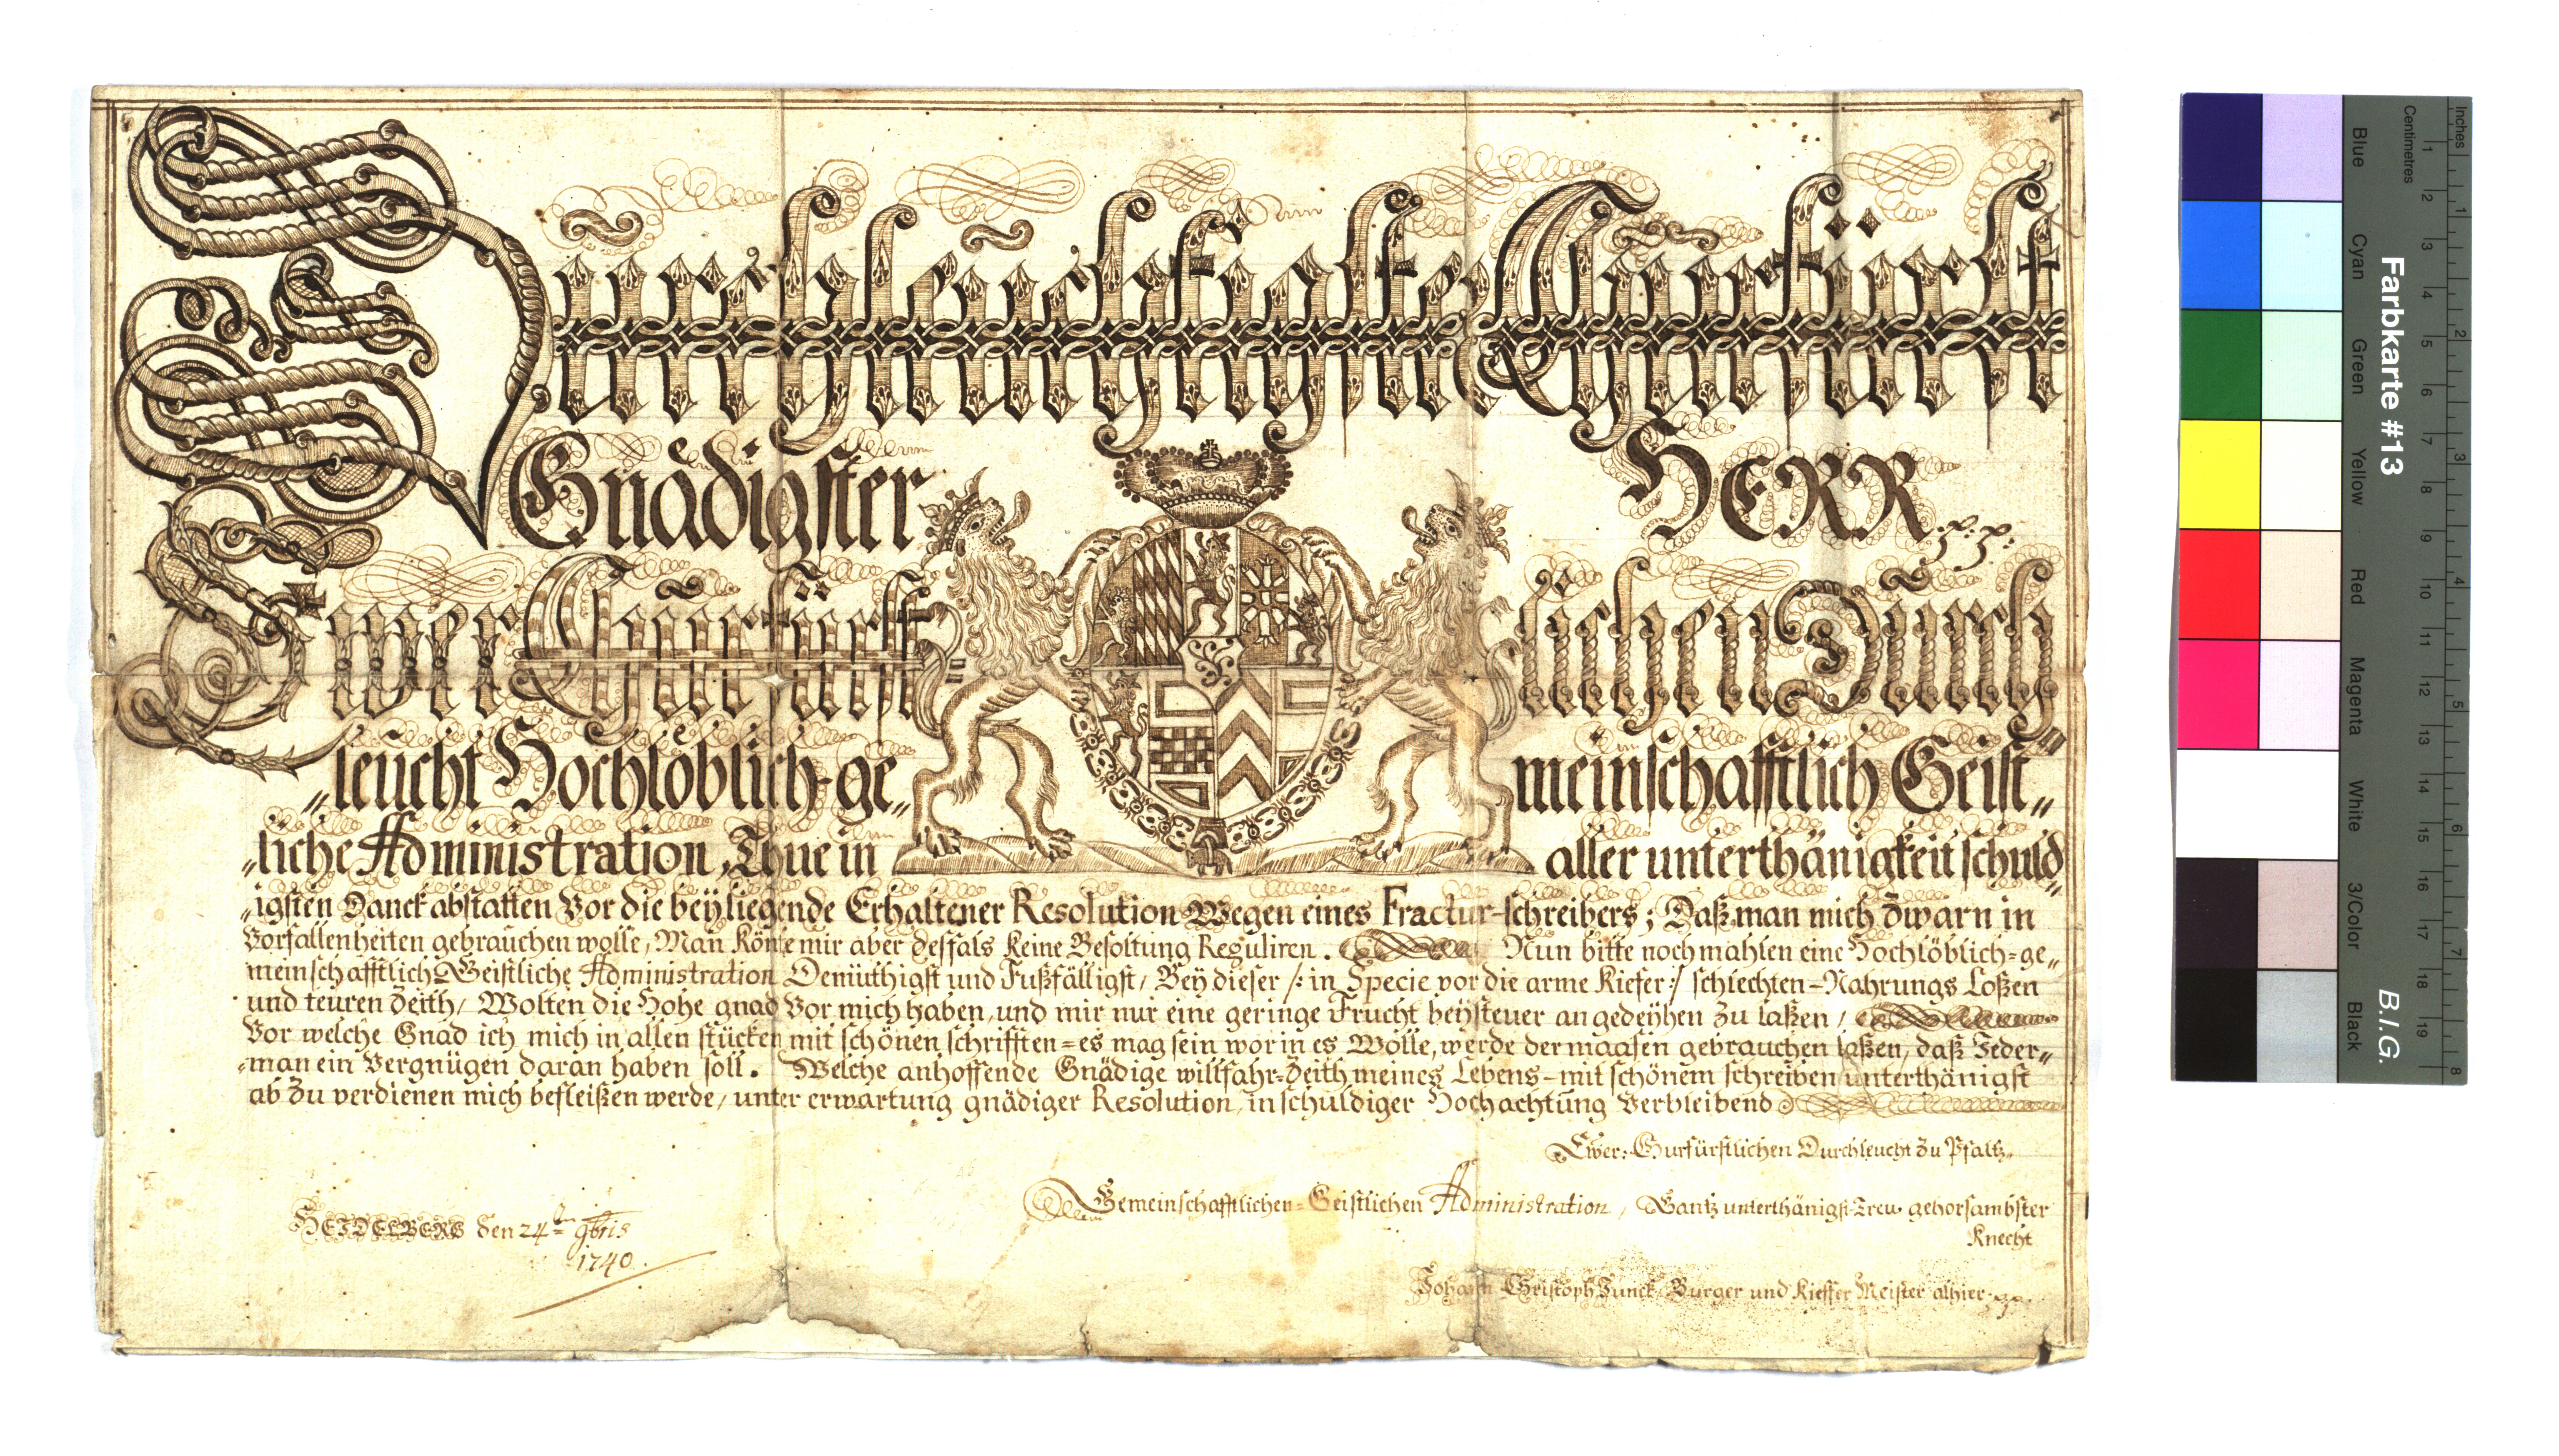 Durchleuchtigster Churfürst
Gnädigster HERR p: p:
Ewer Churfürst lichen Durch
„leucht Hochlöblich-ge„ meinschafftlich Geist„
„liche Administration, Thue in aller unterthänigkeit schuld„
„igsten Danck abstatten Vor die beÿliegende Erhaltener Resolution Wegen eines Fractur-schreibers; Daß man mich Zwarn in
Vorfallenheiten gebrauchen wolle, Man Köne mir aber desfals Keine Besoltung Reguliren. Nun bitte nochmahlen eine Hochlöblich=ge„
meinschafftlich Geistliche Administration Demüthigst und Fußfälligst, Beÿ dieser /: in Specie vor die arme Kiefer :/ schlechten-Nahrungs Loßen
und teuren Zeith, Wolten die Hohe gnad Vor mich haben, und mir nur eine geringe Frucht beÿsteuer angedeÿhen zu laßen,
Vor welche Gnad ich mich in allen stücken mit schönen schrifften=es mag sein worin es Wolle, werde dermaasen gebrauchen laßen, daß Jeder„
„man ein Vergnügen daran haben soll. Welche anhoffende Gnädige willfahr=Zeith meines Lebens-mit schönem schreiben unterthänigst
ab zu verdienen mich befleißen werde, unter erwartung gnädiger Resolution, in schuldiger Hochachtung Verbleibend
Ewer: Curfürstlichen Durchleucht zu Pfaltz„
Gemeinschafftlichen=Geistlichen Administration, Gantz unterthänigst-Trew gehorsambster
Knecht
HEIDELBERG den 24ten 9bris
1740.
Johann Christoph Junck, Burger und Kieffer Meister alhier
Farbkarte #13
B.I.G.
Blue Cyan Green Yellow Red Magenta White 3/Color Black
Inches
1 2 3 4 5 6 7 8
Centimetres
1 2 3 4 5 6 7 8 9 10 11 12 13 14 15 16 17 18 19